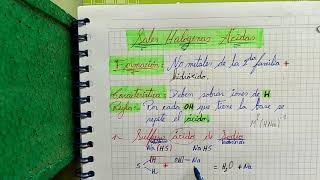 Sales Halógenas Ácidas
Formación: No metales de la familia +
hidróxido.
Característica: Deben sobrar iones de H
Regla: Por cada OH que tiene la base se
repite el ácido.
1- Sulfuro ácido de Sodio
Na(HS) NaHS
S H H + OH - Na = H2O + Na